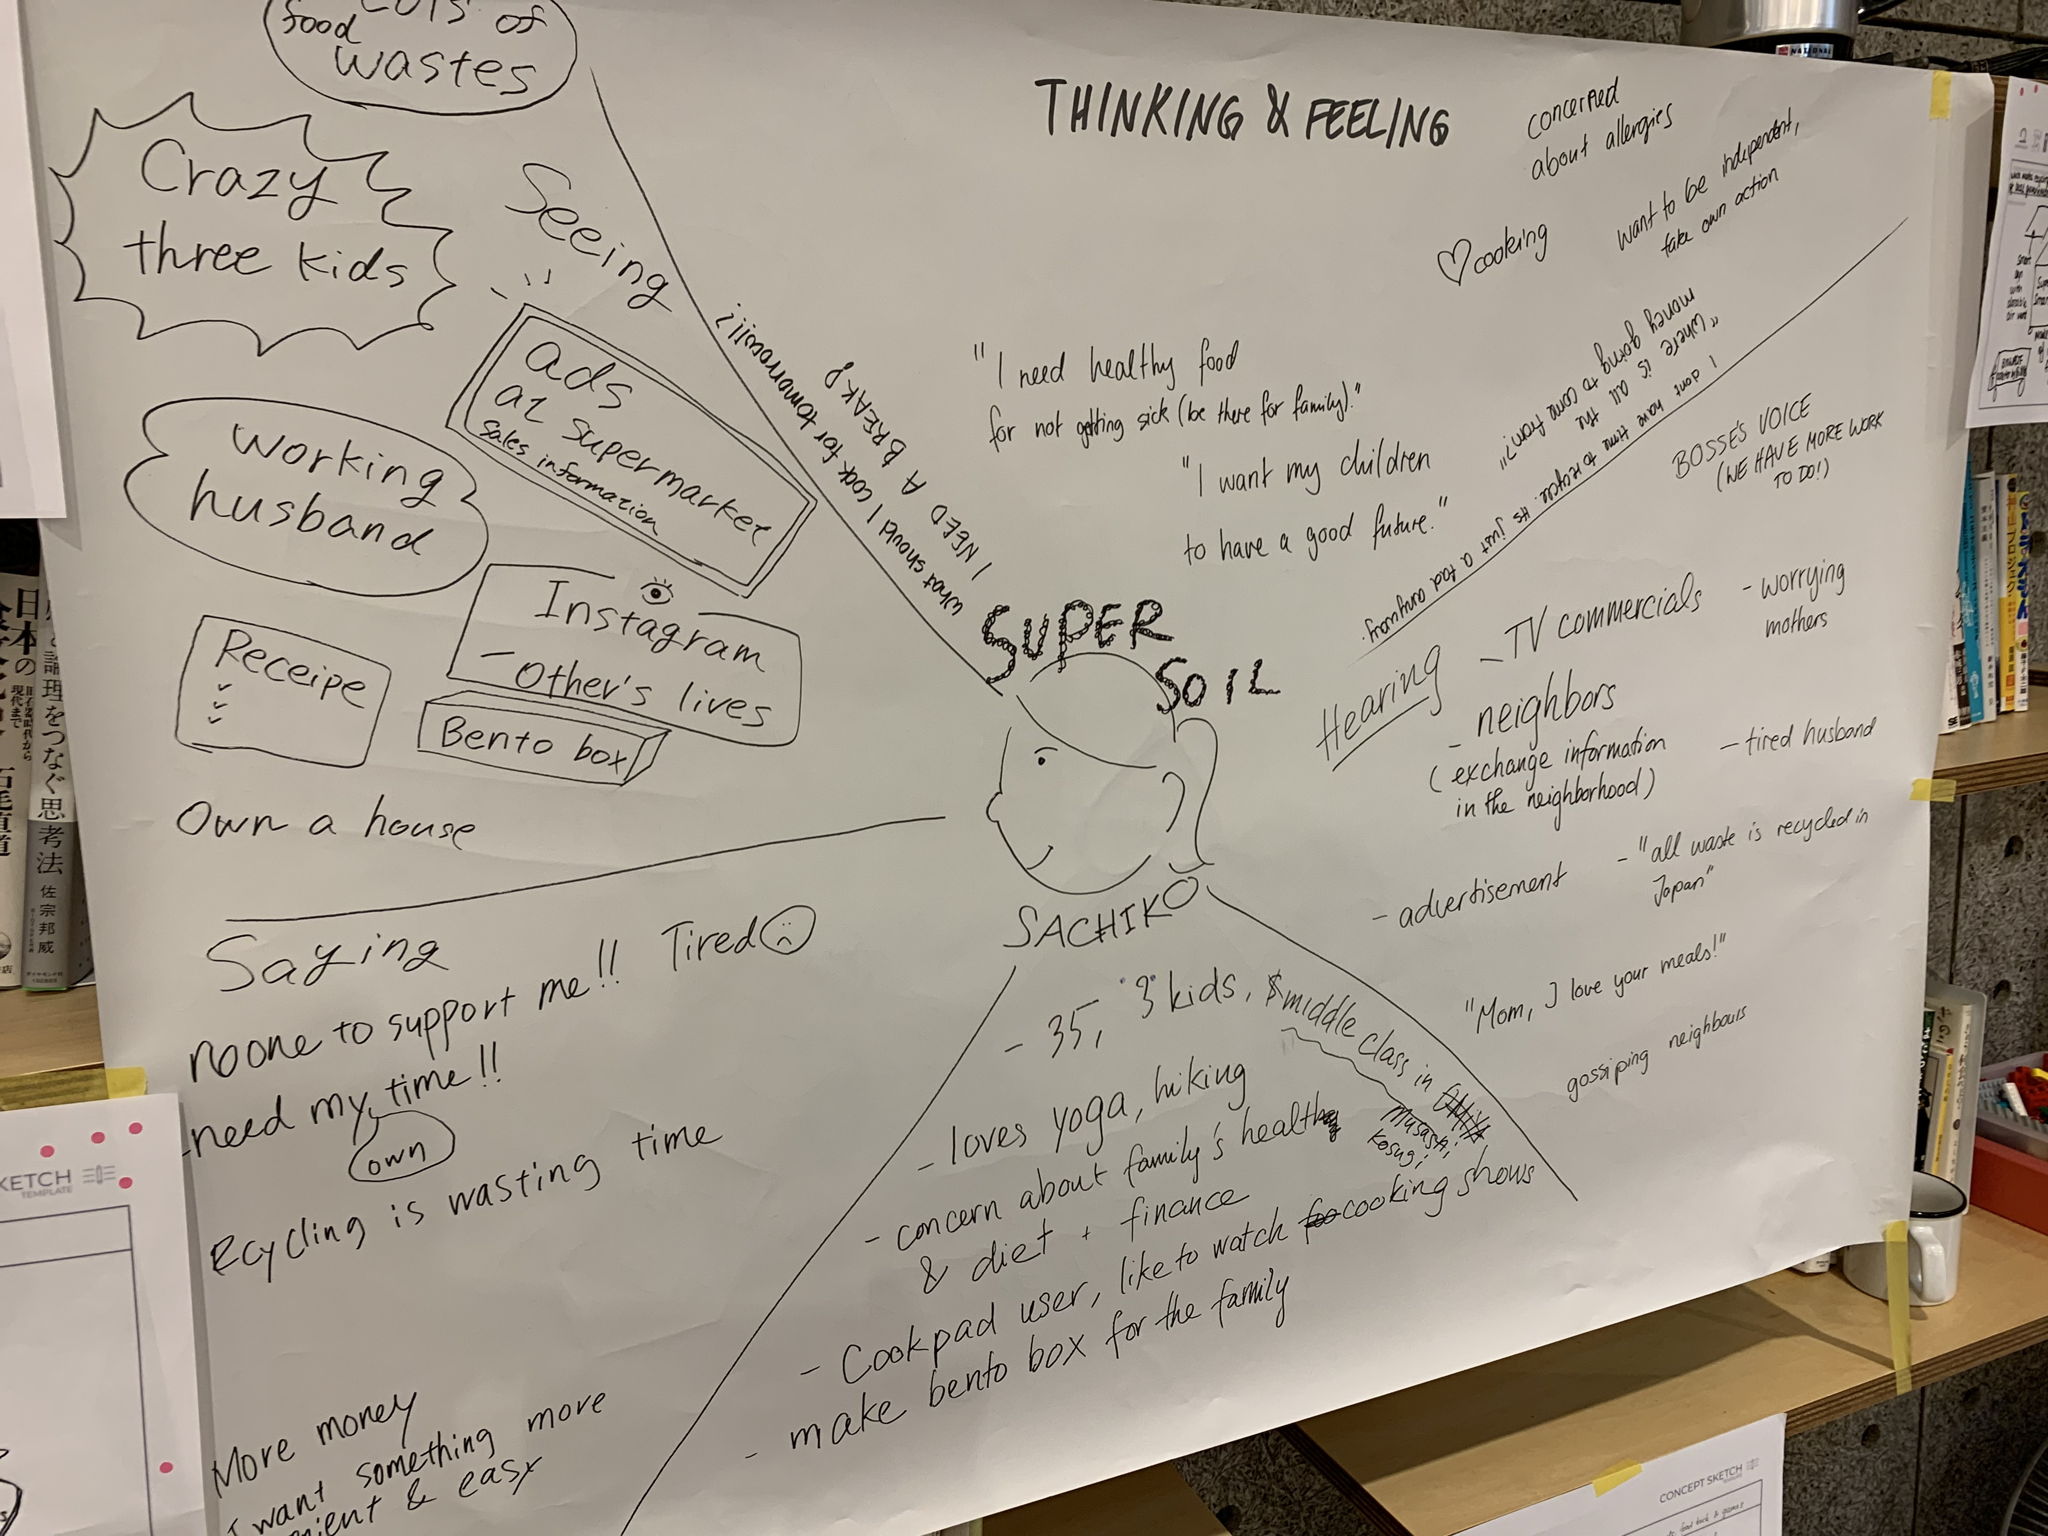 Lots of
food
wastes
Crazy
three kids
Seeing
ads
at supermarket
sales information
working
husband
Instagram
- Other's lives
Receipe
Bento box
Own a house
THINKING & FEELING
concerned
about allergies
want to be independent,
take own action
♡cooking
"I need healthy food
for not getting sick (be there for family)."
"I want my children
to have a good future."
what should I cook for tomorrow!!!?
I NEED A BREAK?
"where is all the
money going to come from?"
I dont have time to recycle. its just a tad
SUPER
SOIL
SACHIKO
Hearing
BOSSE'S VOICE
(WE HAVE MORE WORK
TO DO!)
- TV commercials
- worrying
mothers
- neighbors
(exchange information
in the neighborhood)
- tired husband
- advertisement
- "all waste is recycled in
Japan"
"Mom, I love your meals!"
gossiping neighbours
Saying
noone to support me!!
Tired
need my time!!
own
Recycling is wasting time
More money
I want something more
& easy
- 35, "3" kids, $middle class in
Musashi
Kosugi
- loves yoga, hiking
- concern about family's health
& diet + finance
- Cookpad user, like to watch cooking shows
- make bento box for the family
KETCH
TEMPLATE
CONCEPT SKETCH
TEMPLATE
NATIONAL
日本の
論理をつなぐ思考法
佐宗邦威
石毛直道